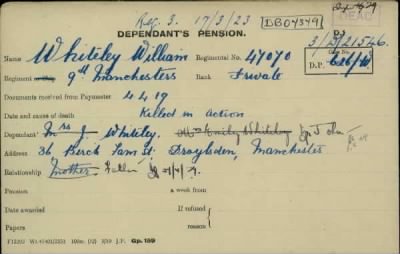 Reg. 3. 17/3/23 DB04349
DEAD
DEPENDANT'S PENSION.
D.J
3/D/21546.
Name Whiteley William Regimental No. 47070
D.P.
Regiment or Ship 9th Manchesters Rank Private
Documents received from Paymaster 4 4 19
Date and cause of death Killed in action
Dependant Mrs J Whiteley. Mrs Emily Whiteley John
Address 36 Birch Lam St. Droylsden, Manchester
Relationship Mother Father
Pension a week from
Date awarded If refused
Papers reason
Gp. 159